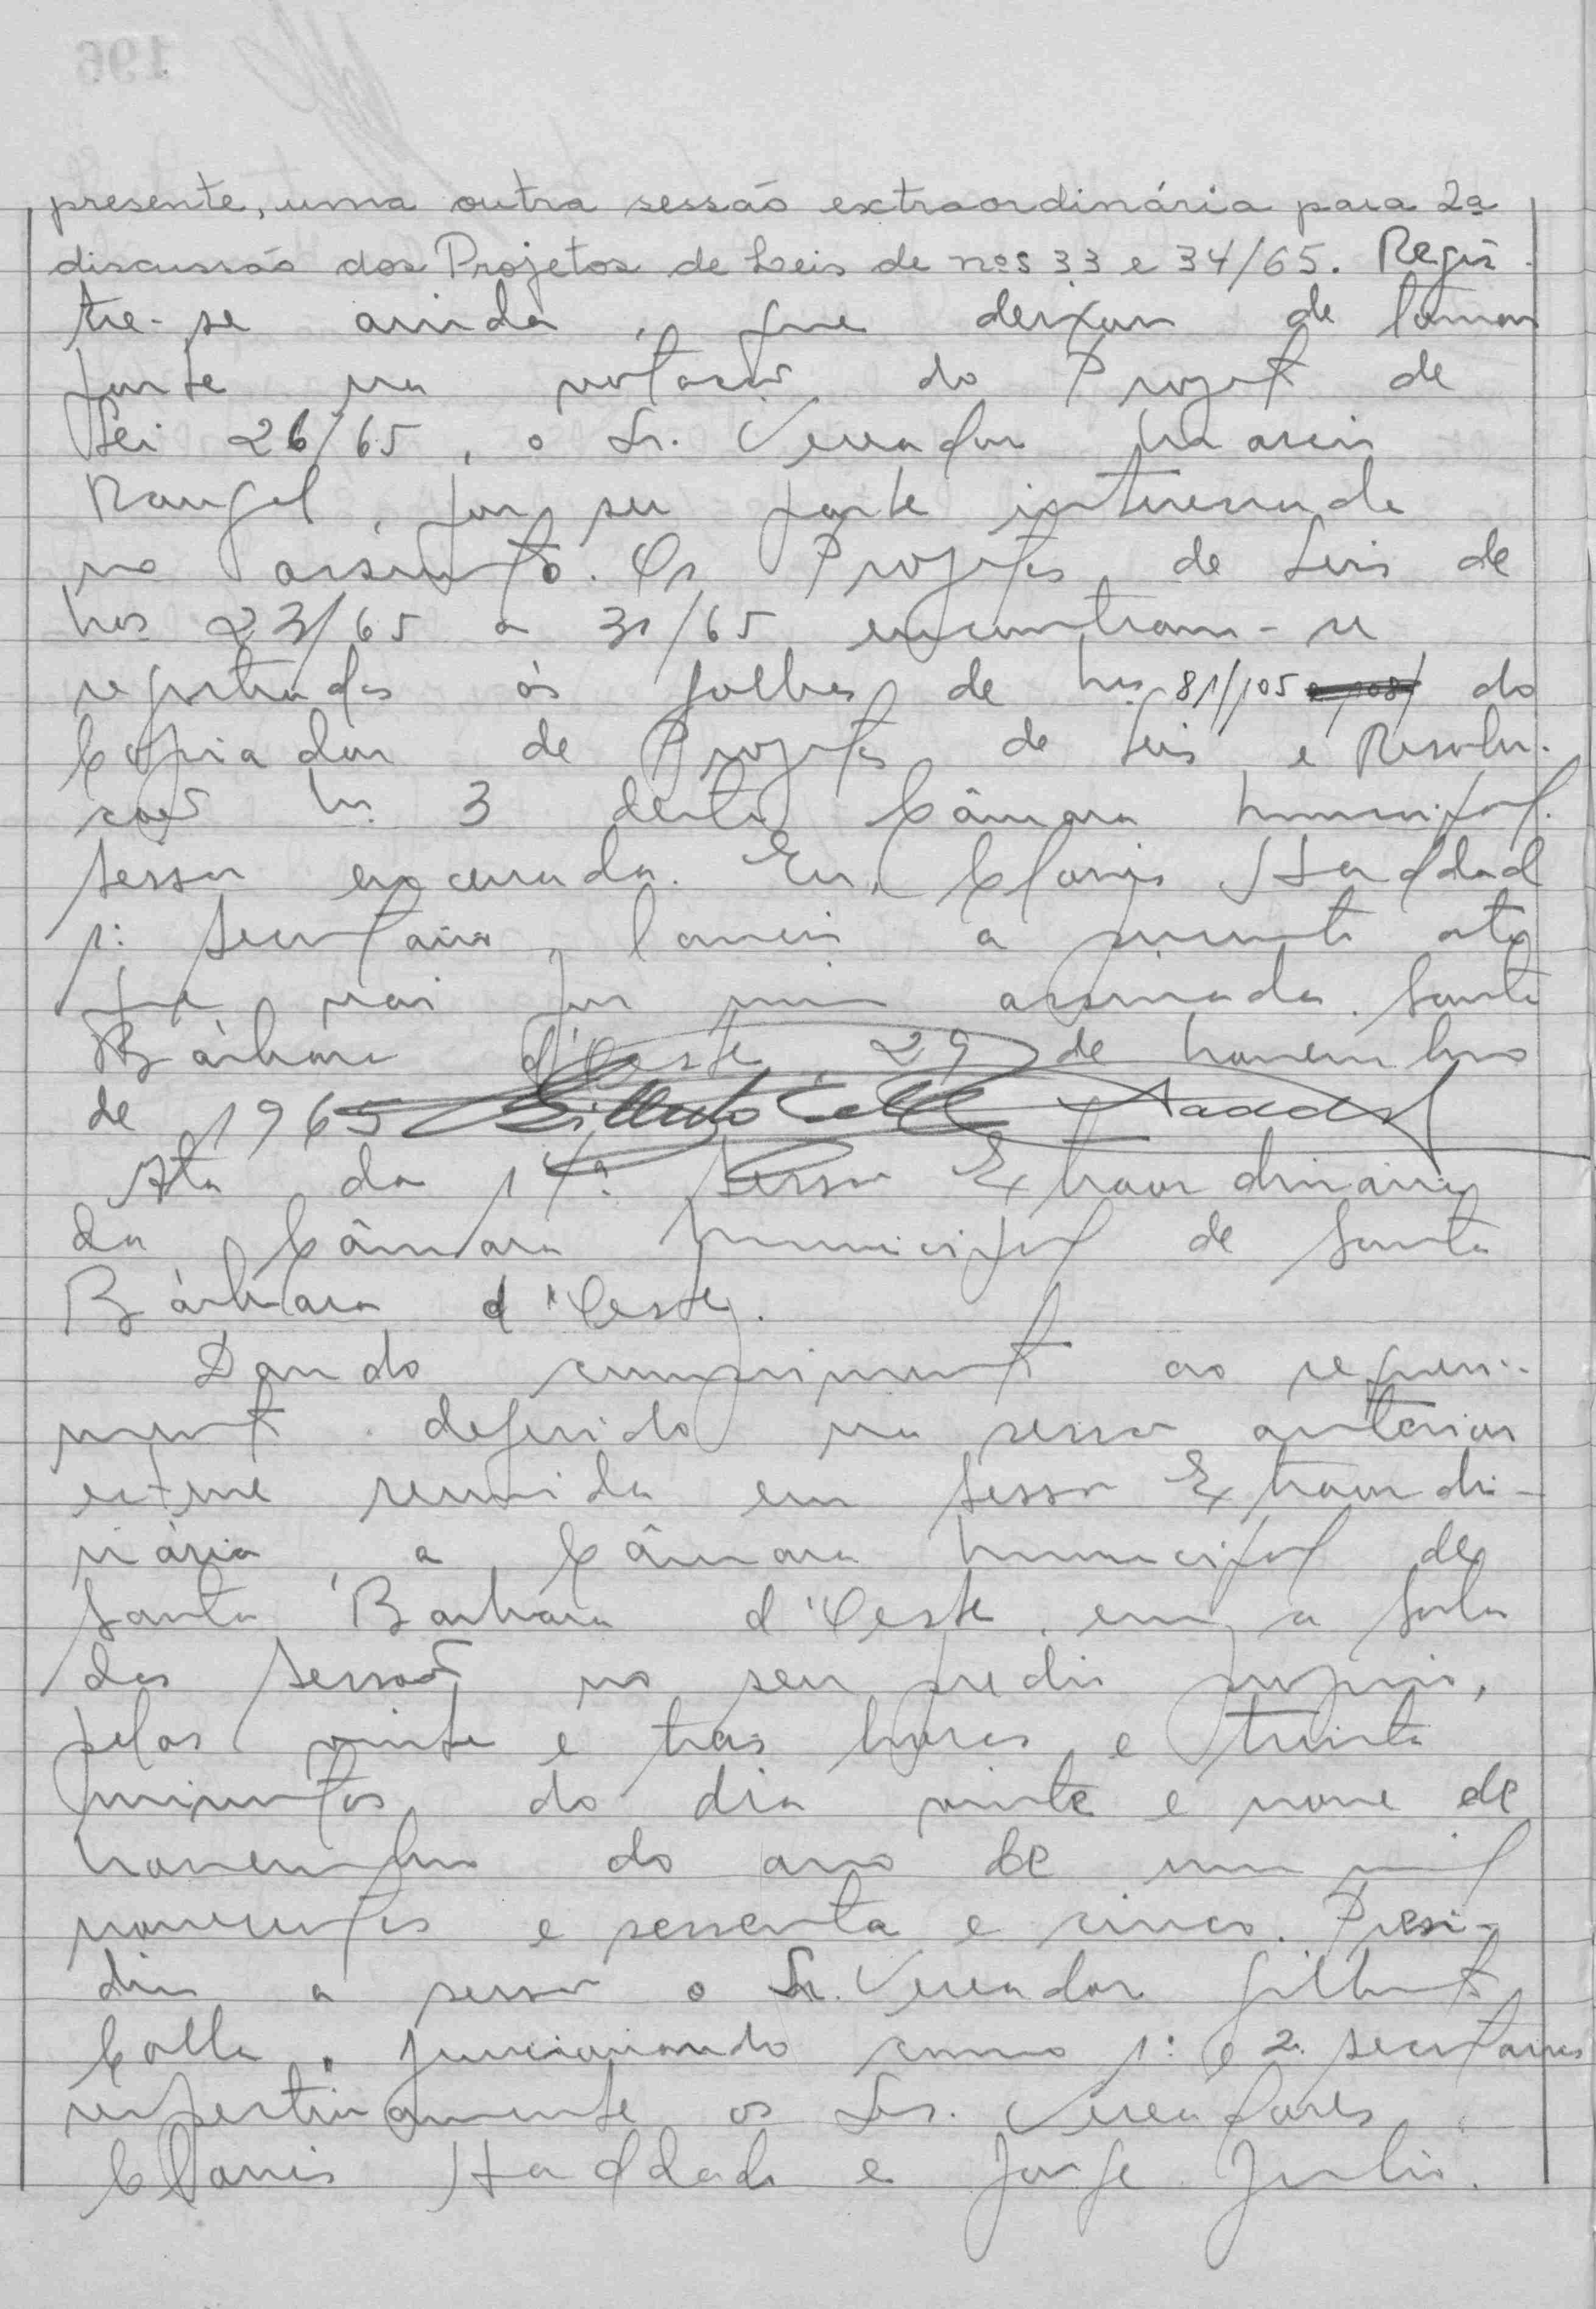 196
presente, uma outra sessão extraordinária para 2ª
discussão dos Projetos de Leis de nºs 33 e 34/65. Regis-
tre-se ainda, que deixou de tomar
parte na votação do Projeto de
Lei 26/65, o Sr. Vereador
Rangel, por ser parte interessada
no assunto. Os Projetos de Leis de
nos 23/65 a 31/65 encontram-se
registrados às folhas de ns. 81/105 do
Copiador de Projetos de Leis e Resolu-
ções n. 3 desta Câmara Municipal.
Sessão encerrada. Eu, Clovis Haddad
1º Secretário, lancei a presente ata
que vai por mim assinada. Santa
Bárbara d'Oeste, 29 de novembro
de 1965 Haddad
Ata da 14ª Sessão Extraordinária
da Câmara Municipal de Santa
Bárbara d'Oeste.
Dando cumprimento ao requeri-
mento deferido na sessão anterior
esteve reunida em Sessão Extraordi-
nária a Câmara Municipal de
Santa Barbara d'Oeste, em a Sala
das Sessões no seu predio proprio,
pelas vinte e tres horas e trinta
minutos do dia vinte e nove de
novembro do ano de um mil
novecentos e sessenta e cinco. Presi-
diu a sessão o Sr. Vereador Gilberto
Colla, funcionando como 1º e 2º secretarios
respectivamente os Srs. Vereadores
Clovis Haddad e Jorge Julio.